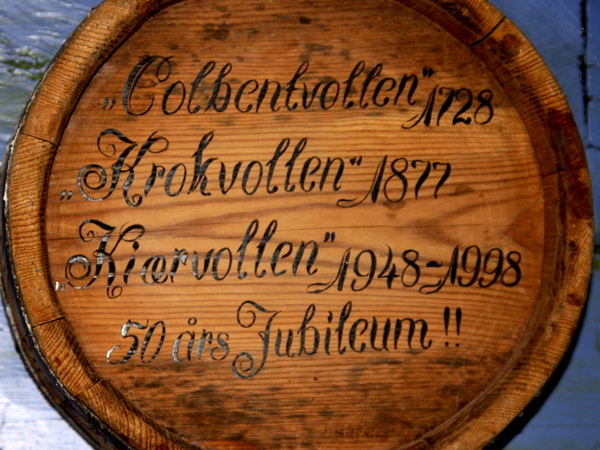 „Colbentvollen" 1728
„Krokvollen" 1877
„Kiærvollen" 1948-1998
50 års Jubileum !!